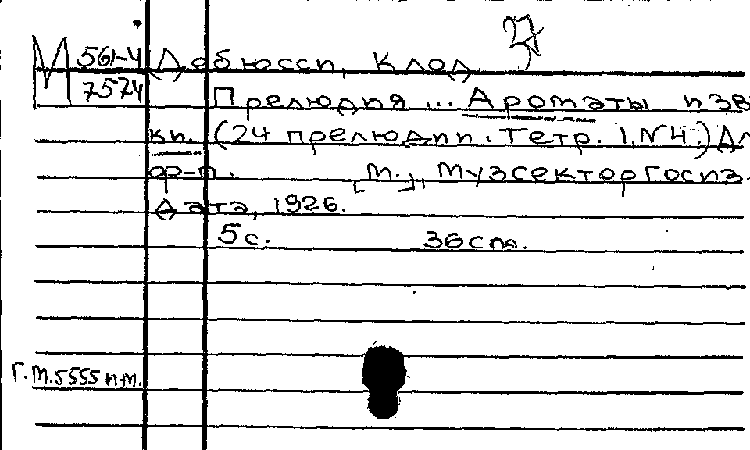 М 561-4 Дебюсси, Клод
7574 Прелюдия ... Ароматы и зв
кп. (24 прелюдии. Тетр. 1, №4.) Дл
ф-п. [М.], Музсектор Госиз.
Дата, 1926.
5 с. 36 см.
Г.М.5555 н.м.